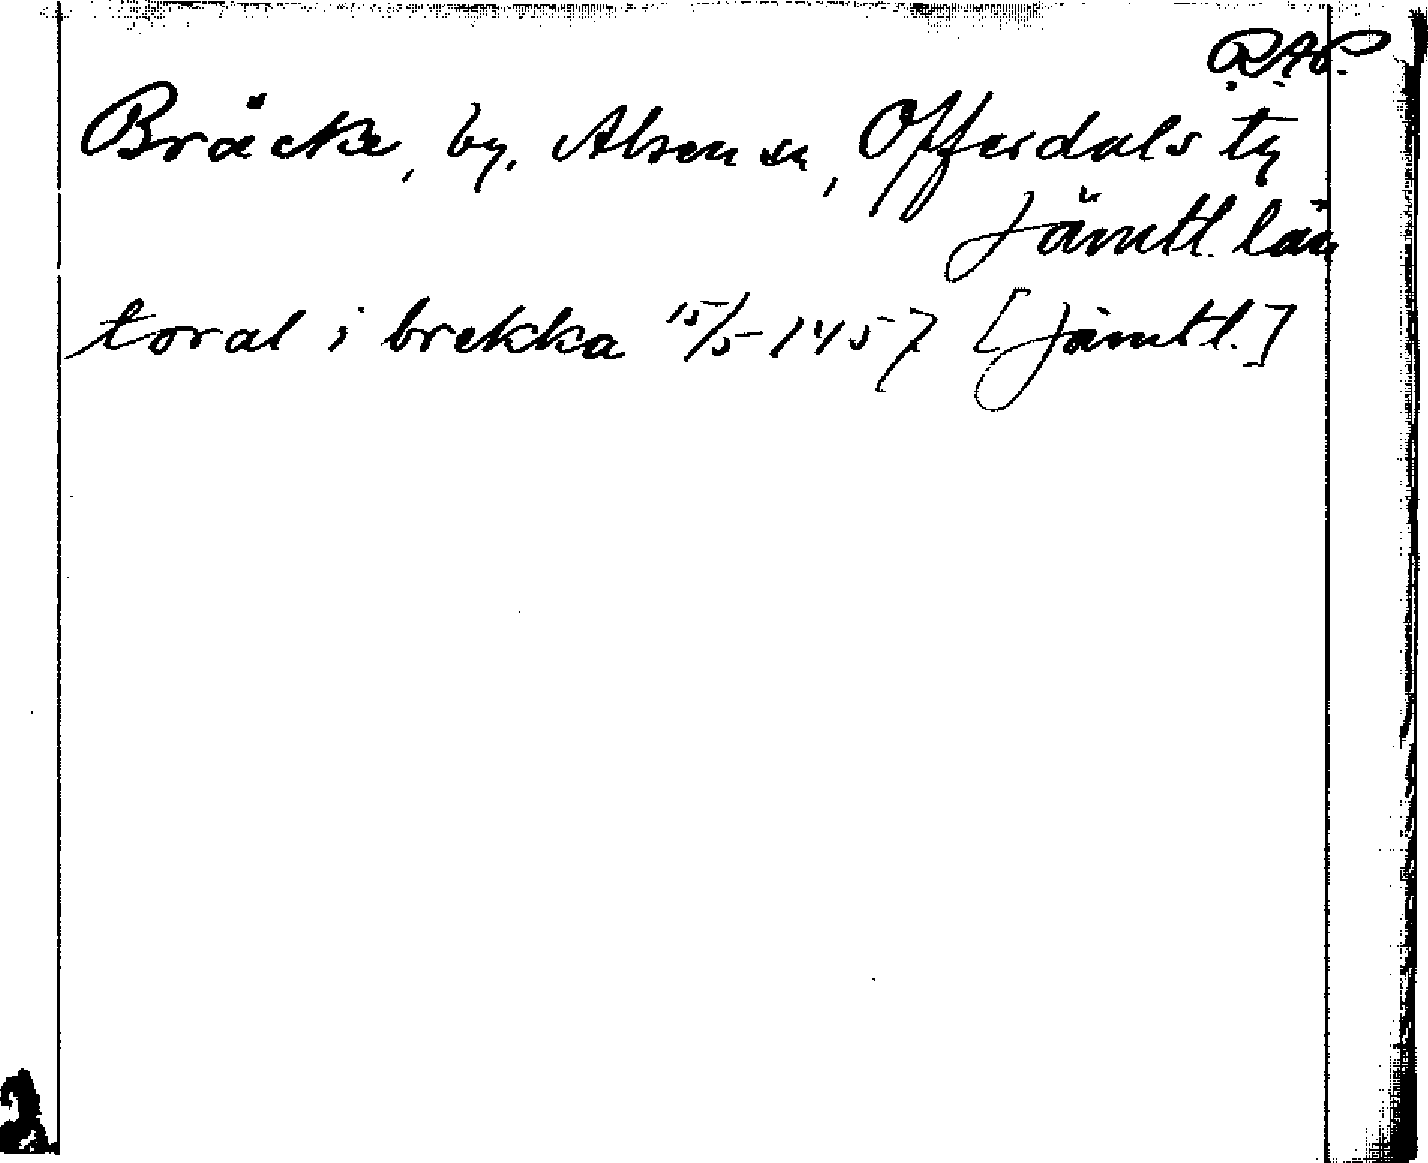 R.A.P.
Bräcke, by, Alsen sn, Offerdals tg
Jämtl. län
toral i brekka 15/5-1457 [Jämtl.]